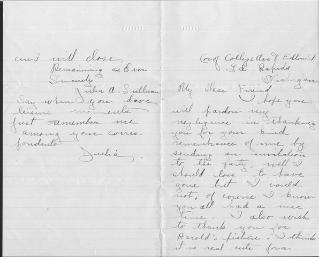 and will close
Remaining as Ever
Sincerely
A. Sullivan
Say when you have
leisure
just remember me
among your corres-
pondents
Cor of College Ave &
Rapids
Michigan
My Dear Friend
I hope you
will pardon my
negligence in thanking
you for your kind
remembrance of me by
sending an invitation
to the party. well I
should love to have
gone but I could
not, of course I know
you all had a nice
time. I also wish
to thank you for
Harold's picture. I think
it is real cute for a